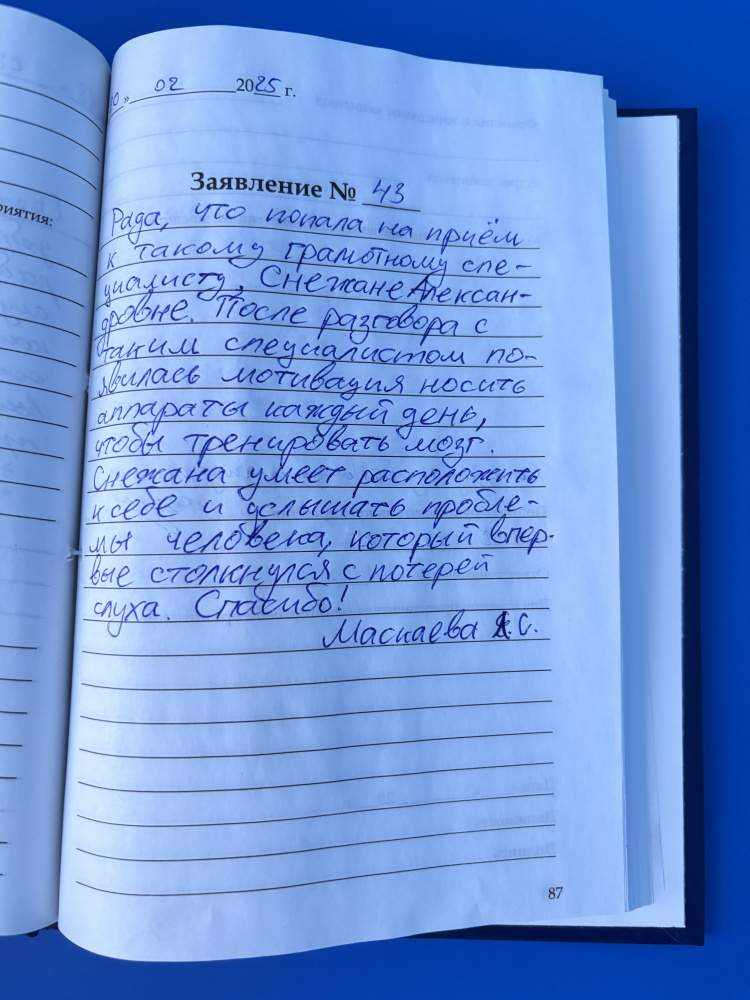 риятия:
0 » 02 2025 г.
Заявление № 43
Рада, что попала на приём
к такому грамотному спе-
циалисту, Снежане Алексан-
дровне. После разговора с
таким специалистом по-
явилась мотивация носить
аппараты каждый день,
чтобы тренировать мозг.
Снежана умеет расположить
к себе и услышать пробле-
мы человека, который впер-
вые столкнулся с потерей
слуха. Спасибо!
Маскаева С.
87